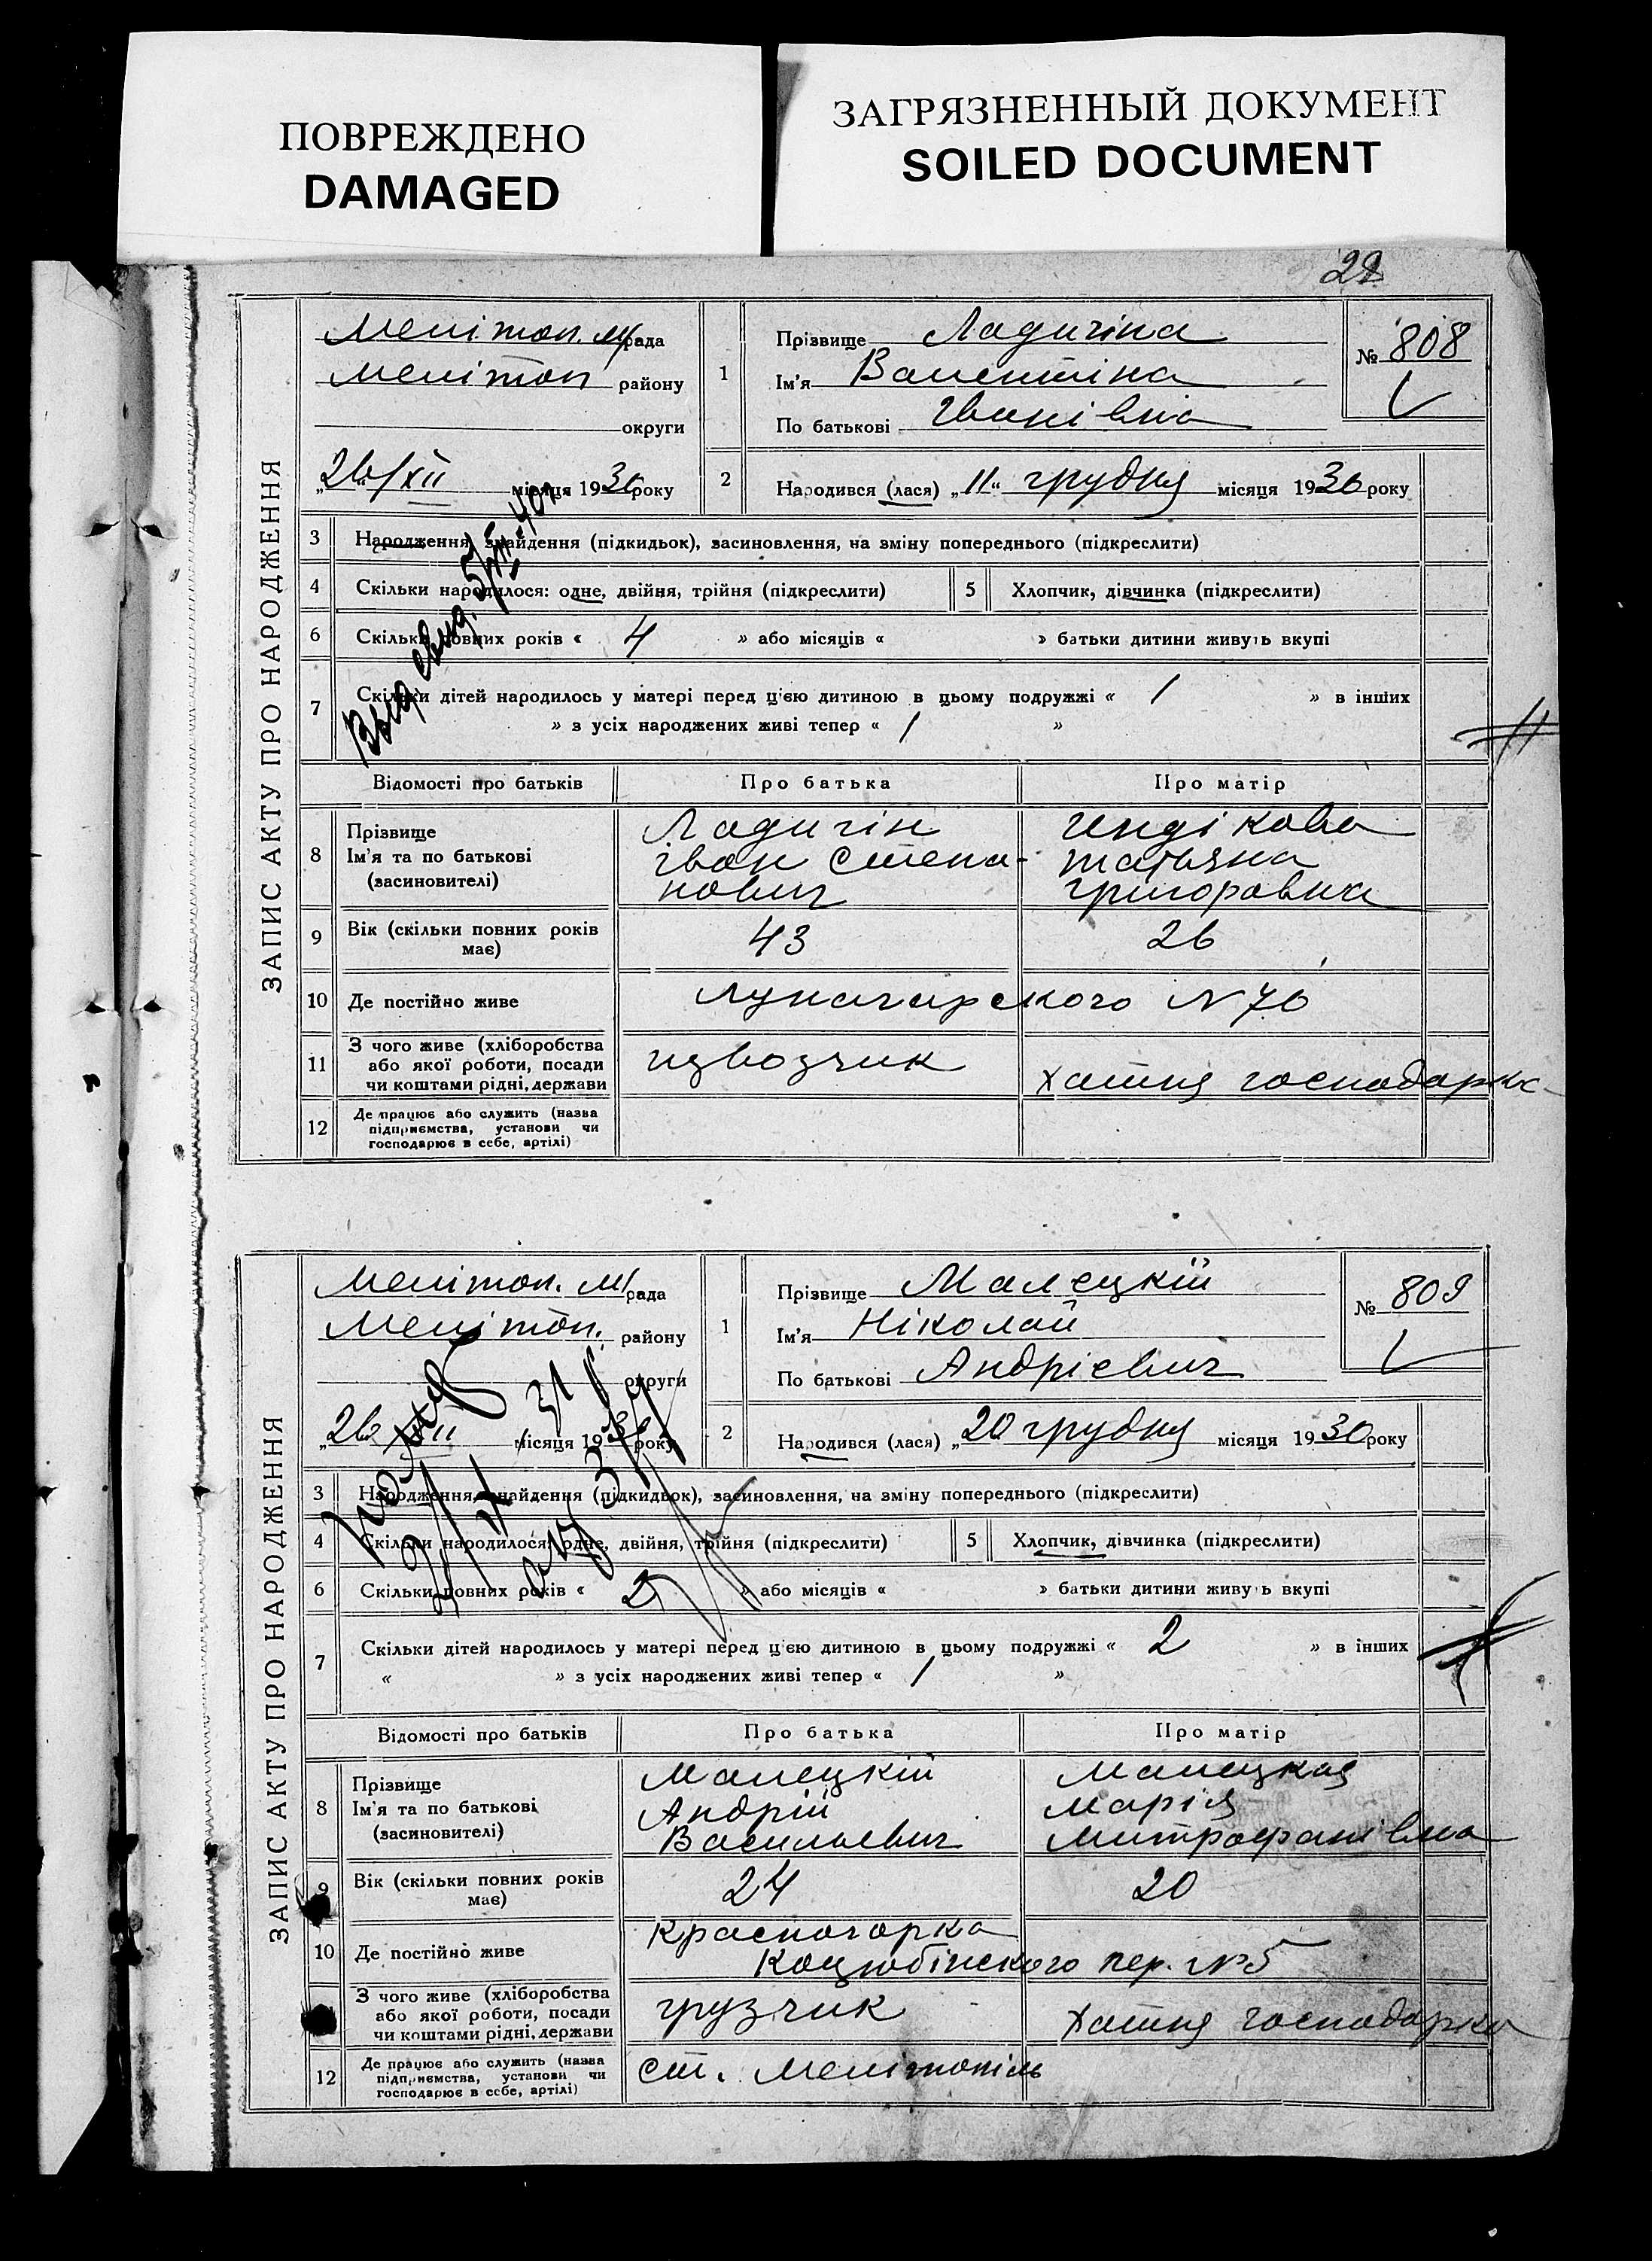 ПОВРЕЖДЕНО
DAMAGED
ЗАГРЯЗНЕННЫЙ ДОКУМЕНТ
SOILED DOCUMENT
ЗАПИС АКТУ ПРО НАРОДЖЕННЯ
Мелітоп. М/рада
Мелітоп району
округи
„26/XII місяця 1930 року
1
Прізвище Ладигіна
Ім'я Валентіна
По батькові Іванівна
№ 808
2
Народився (лася) „11“ грудня місяця 1930 року
3 Народження, знайдення (підкидьок), засиновлення, на зміну попереднього (підкреслити)
4 Скільки народилося: одне, двійня, трійня (підкреслити)
5 Хлопчик, дівчинка (підкреслити)
6 Скільки повних років « 4 » або місяців « » батьки дитини живуть вкупі
7 Скільки дітей народилось у матері перед ц'єю дитиною в цьому подружжі « 1 » в інших
» з усіх народжених живі тепер « 1 »
Выд. свид. 5/
Відомості про батьків Про батька Про матір
8 Прізвище
Ім'я та по батькові
(засиновителі)
Ладигін
Іван Степа-
нович
Индікова
Татьяна
Григоровна
9 Вік (скільки повних років
має)
43
26
10 Де постійно живе Луначарского N 76
11 З чого живе (хліборобства
або якої роботи, посади
чи коштами рідні, держави
извозчик
Хатня господарка
12 Де працює або служить (назва
підприємства, установи чи
господарює в себе, артілі)
ЗАПИС АКТУ ПРО НАРОДЖЕННЯ
Мелітоп. М/рада
Мелітоп. району
округи
„26/XII місяця 1930 року
1
Прізвище Малецкій
Ім'я Ніколай
По батькові Андрієвич
№ 809
2
Народився (лася) „20 грудня місяця 1930 року
3 Народження, знайдення (підкидьок), засиновлення, на зміну попереднього (підкреслити)
4 Скільки народилося: одне, двійня, трійня (підкреслити)
5 Хлопчик, дівчинка (підкреслити)
6 Скільки повних років « 2 » або місяців « » батьки дитини живуть вкупі
7 Скільки дітей народилось у матері перед ц'єю дитиною в цьому подружжі « 2 » в інших
« » з усіх народжених живі тепер « 1 »
Відомості про батьків Про батька Про матір
8 Прізвище
Ім'я та по батькові
(засиновителі)
Малецкій
Андрій
Васильевич
Малецкая
Марія
Митрофанівна
9 Вік (скільки повних років
має)
24
20
10 Де постійно живе
Красногорка
Коцюбінского пер. N 5
З чого живе (хліборобства
або якої роботи, посади
чи коштами рідні, держави
грузчик
Хатня господарка
12 Де працює або служить (назва
підприємства, установи чи
господарює в себе, артілі)
ст. Мелітопіль